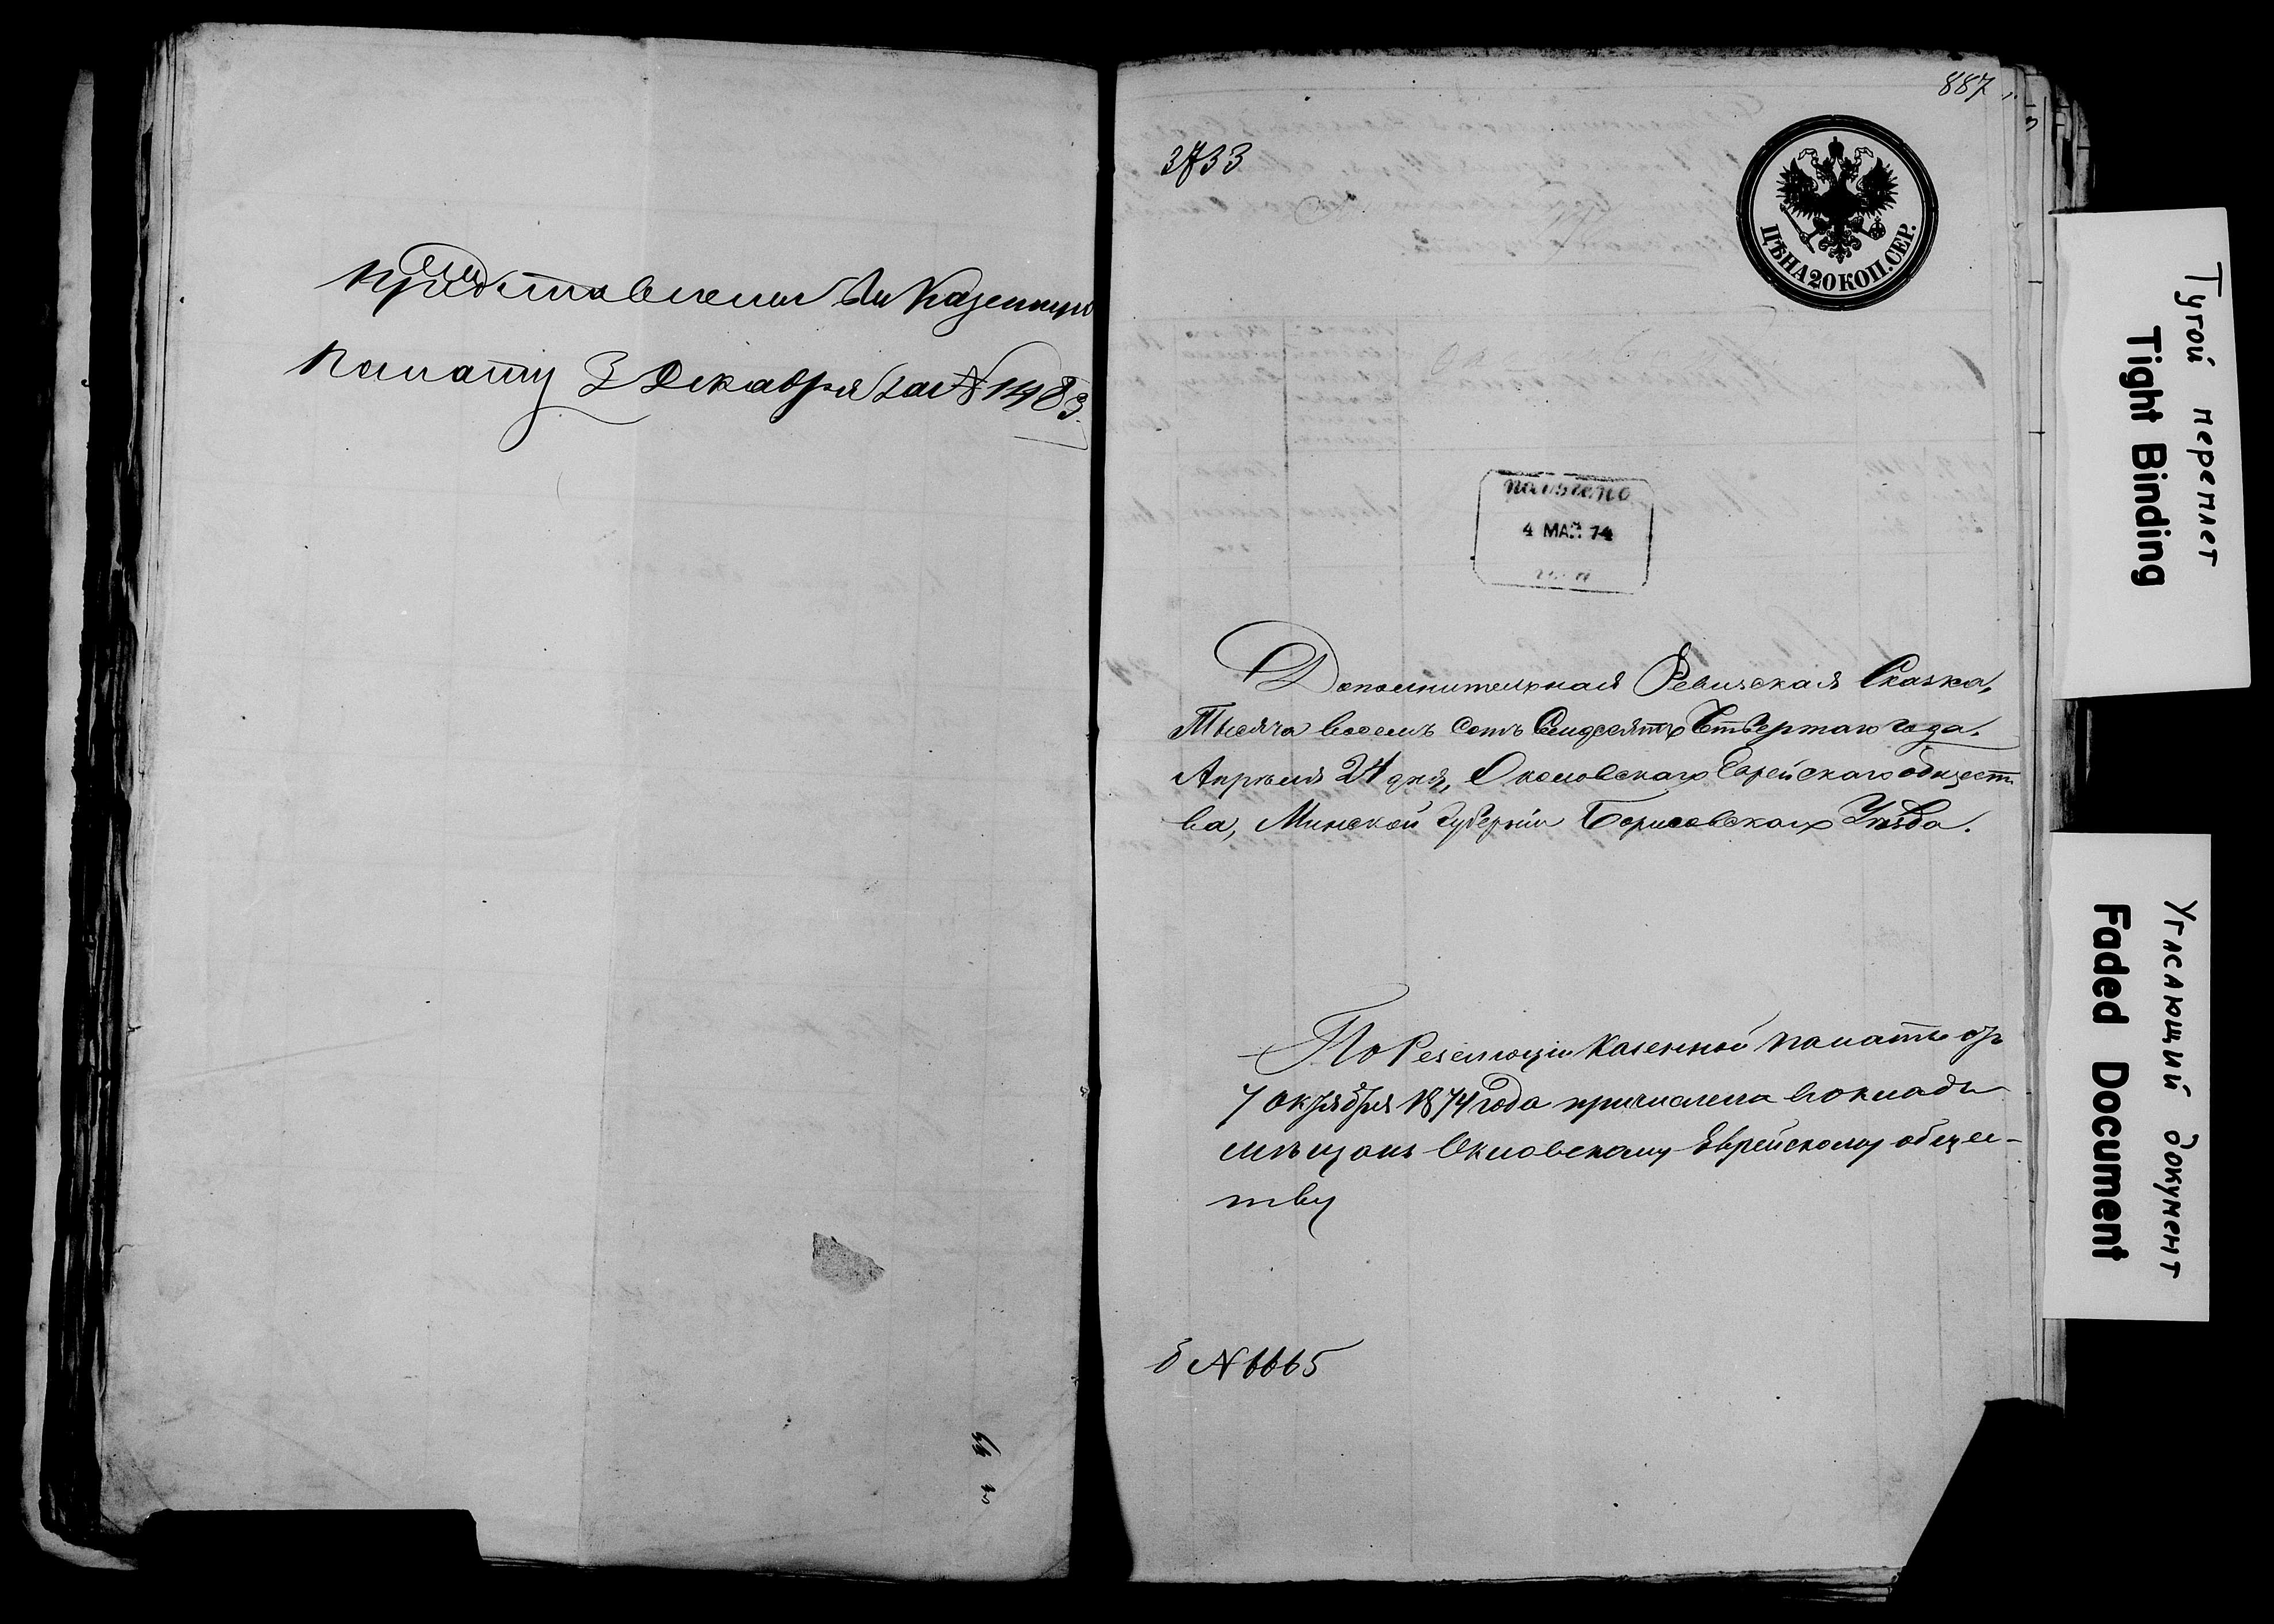 представлена въ Казенную
Палату 3 Декабря за № 1483
887
3733
ЦѢНА 20 КОП. СЕР.
получено
4 МАЯ 74
Дополнительная Ревизская Сказка,
Тысяча восемь сотъ Семдесятъ Четвертаго года.
Апрѣля 24 дня, Околовскаго Еврейскаго общест
ва, Минской Губерніи Борисовскаго Уѣзда.
По Резолюціи Казенной палаты отъ
7 октября 1874 года причислена въ окладъ
мѣщанъ Околовскому Еврейскому общес-
тву
№ 6665
Тугой переплет
Tight Binding
Угасающий документ
Faded Document